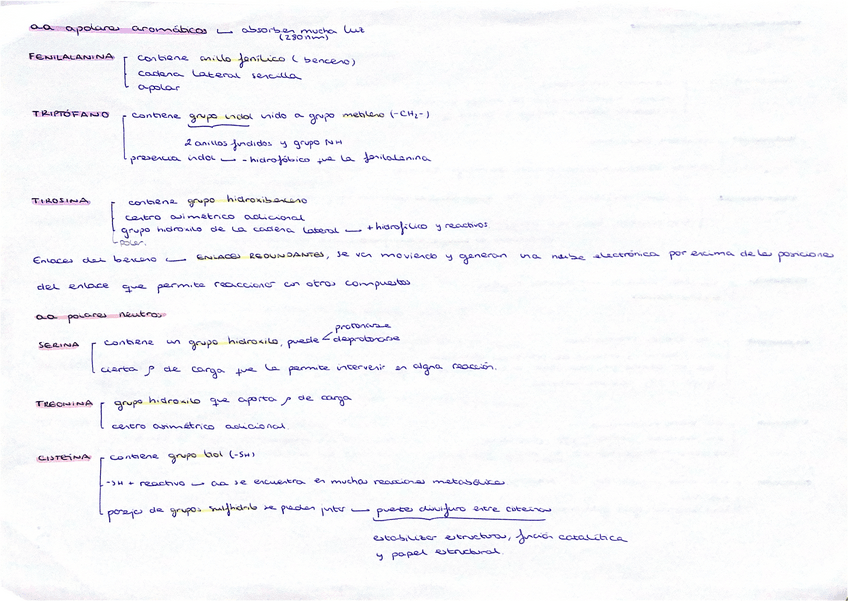 aa apolares aromáticos → absorben mucha luz
(280nm)
FENILALANINA contiene anillo fenílico (benceno)
cadena lateral sencilla
apolar
TRIPTÓFANO contiene grupo indol unido a grupo metileno (-CH2-)
2 anillos fundidos y grupo NH
presencia indol → - hidrofóbico que la fenilalanina
TIROSINA contiene grupo hidroxibenceno
centro asimétrico adicional
grupo hidroxilo de la cadena lateral → + hidrofílico y reactivos
polar.
Enlaces del benceno → ENLACES REDUNDANTES, se van moviendo y generan una nube electrónica por encima de las posiciones
del enlace que permite reaccionar con otros compuestos
aa polares neutros
protonarse
SERINA contiene un grupo hidroxilo, puede < deprotonarse
cierta ρ de carga que la permite intervenir en alguna reacción.
TREONINA grupo hidroxilo que aporta ρ de carga
centro asimétrico adicional
CISTEÍNA contiene grupo tiol (-SH)
-SH + reactivo → aa se encuentra en muchas reacciones metabólicas
parejas de grupos sulfhidrilo se pueden juntar → puentes disulfuro entre cisteínas
estabilizar estructuras, función catalítica
y papel estructural.